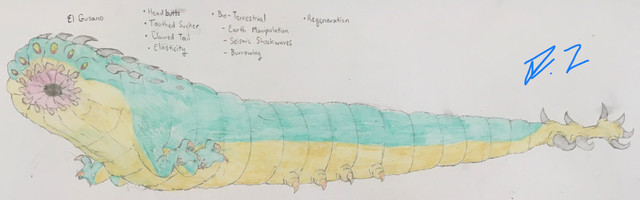 El Gusano
• Headbutts
• Toothed Sucker
• Clawed Tail
• Elasticity
• Bio-Terrestrial
- Earth Manipulation
- Seismic Shockwaves
- Burrowing
• Regeneration